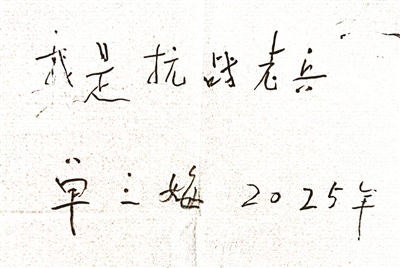 我是抗战老兵
单三娥 2025年